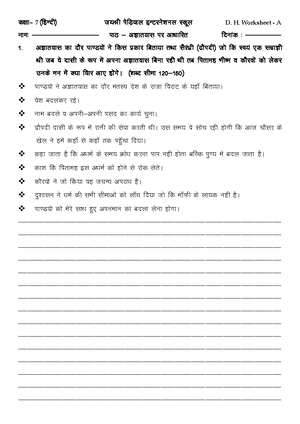 कक्षा– 7 (हिन्दी) जयश्री पेड़िवाल इन्टरनेशनल स्कूल D. H. Worksheet - A
नामः पाठ – अज्ञातवास पर आधारित दिनांक :
1. अज्ञातवास का दौर पाण्डवों ने किस प्रकार बिताया तथा सैरंध्री (द्रौपदी) जो कि स्वयं एक सम्राज्ञी
थी जब वे दासी के रूप में अपना अज्ञातवास बिता रही थी तब पितामह भीष्म व कौरवों को लेकर
उनके मन में क्या विचार आए होंगे। (शब्द सीमा 120–150)
❖ पाण्डवों ने अज्ञातवास का दौर मत्स्य देश के राजा विराट के यहाँ बिताया।
❖ वेश बदलकर रहे।
❖ नाम बदले व अपनी–अपनी पसंद का कार्य चुना।
❖ द्रौपदी दासी के रूप में रानी की सेवा करती थी। उस समय वे सोच रही होगी कि आज चौसर के
खेल ने हमें कहाँ से कहाँ तक पहुँचा दिया।
❖ कहा जाता है कि अधर्म के समय क्रोध करना पाप नहीं होता बल्कि पुण्य में बदल जाता है।
❖ काश कि पितामह इस अधर्म को होने से रोक लेते।
❖ कौरवों ने जो किया वह जघन्य अपराध है।
❖ दुशासन ने धर्म की सभी सीमाओं को लाँघ दिया जो कि माँफी के लायक नहीं है।
❖ पाण्डवों को मेरे साथ हुए अपमान का बदला लेना होगा।